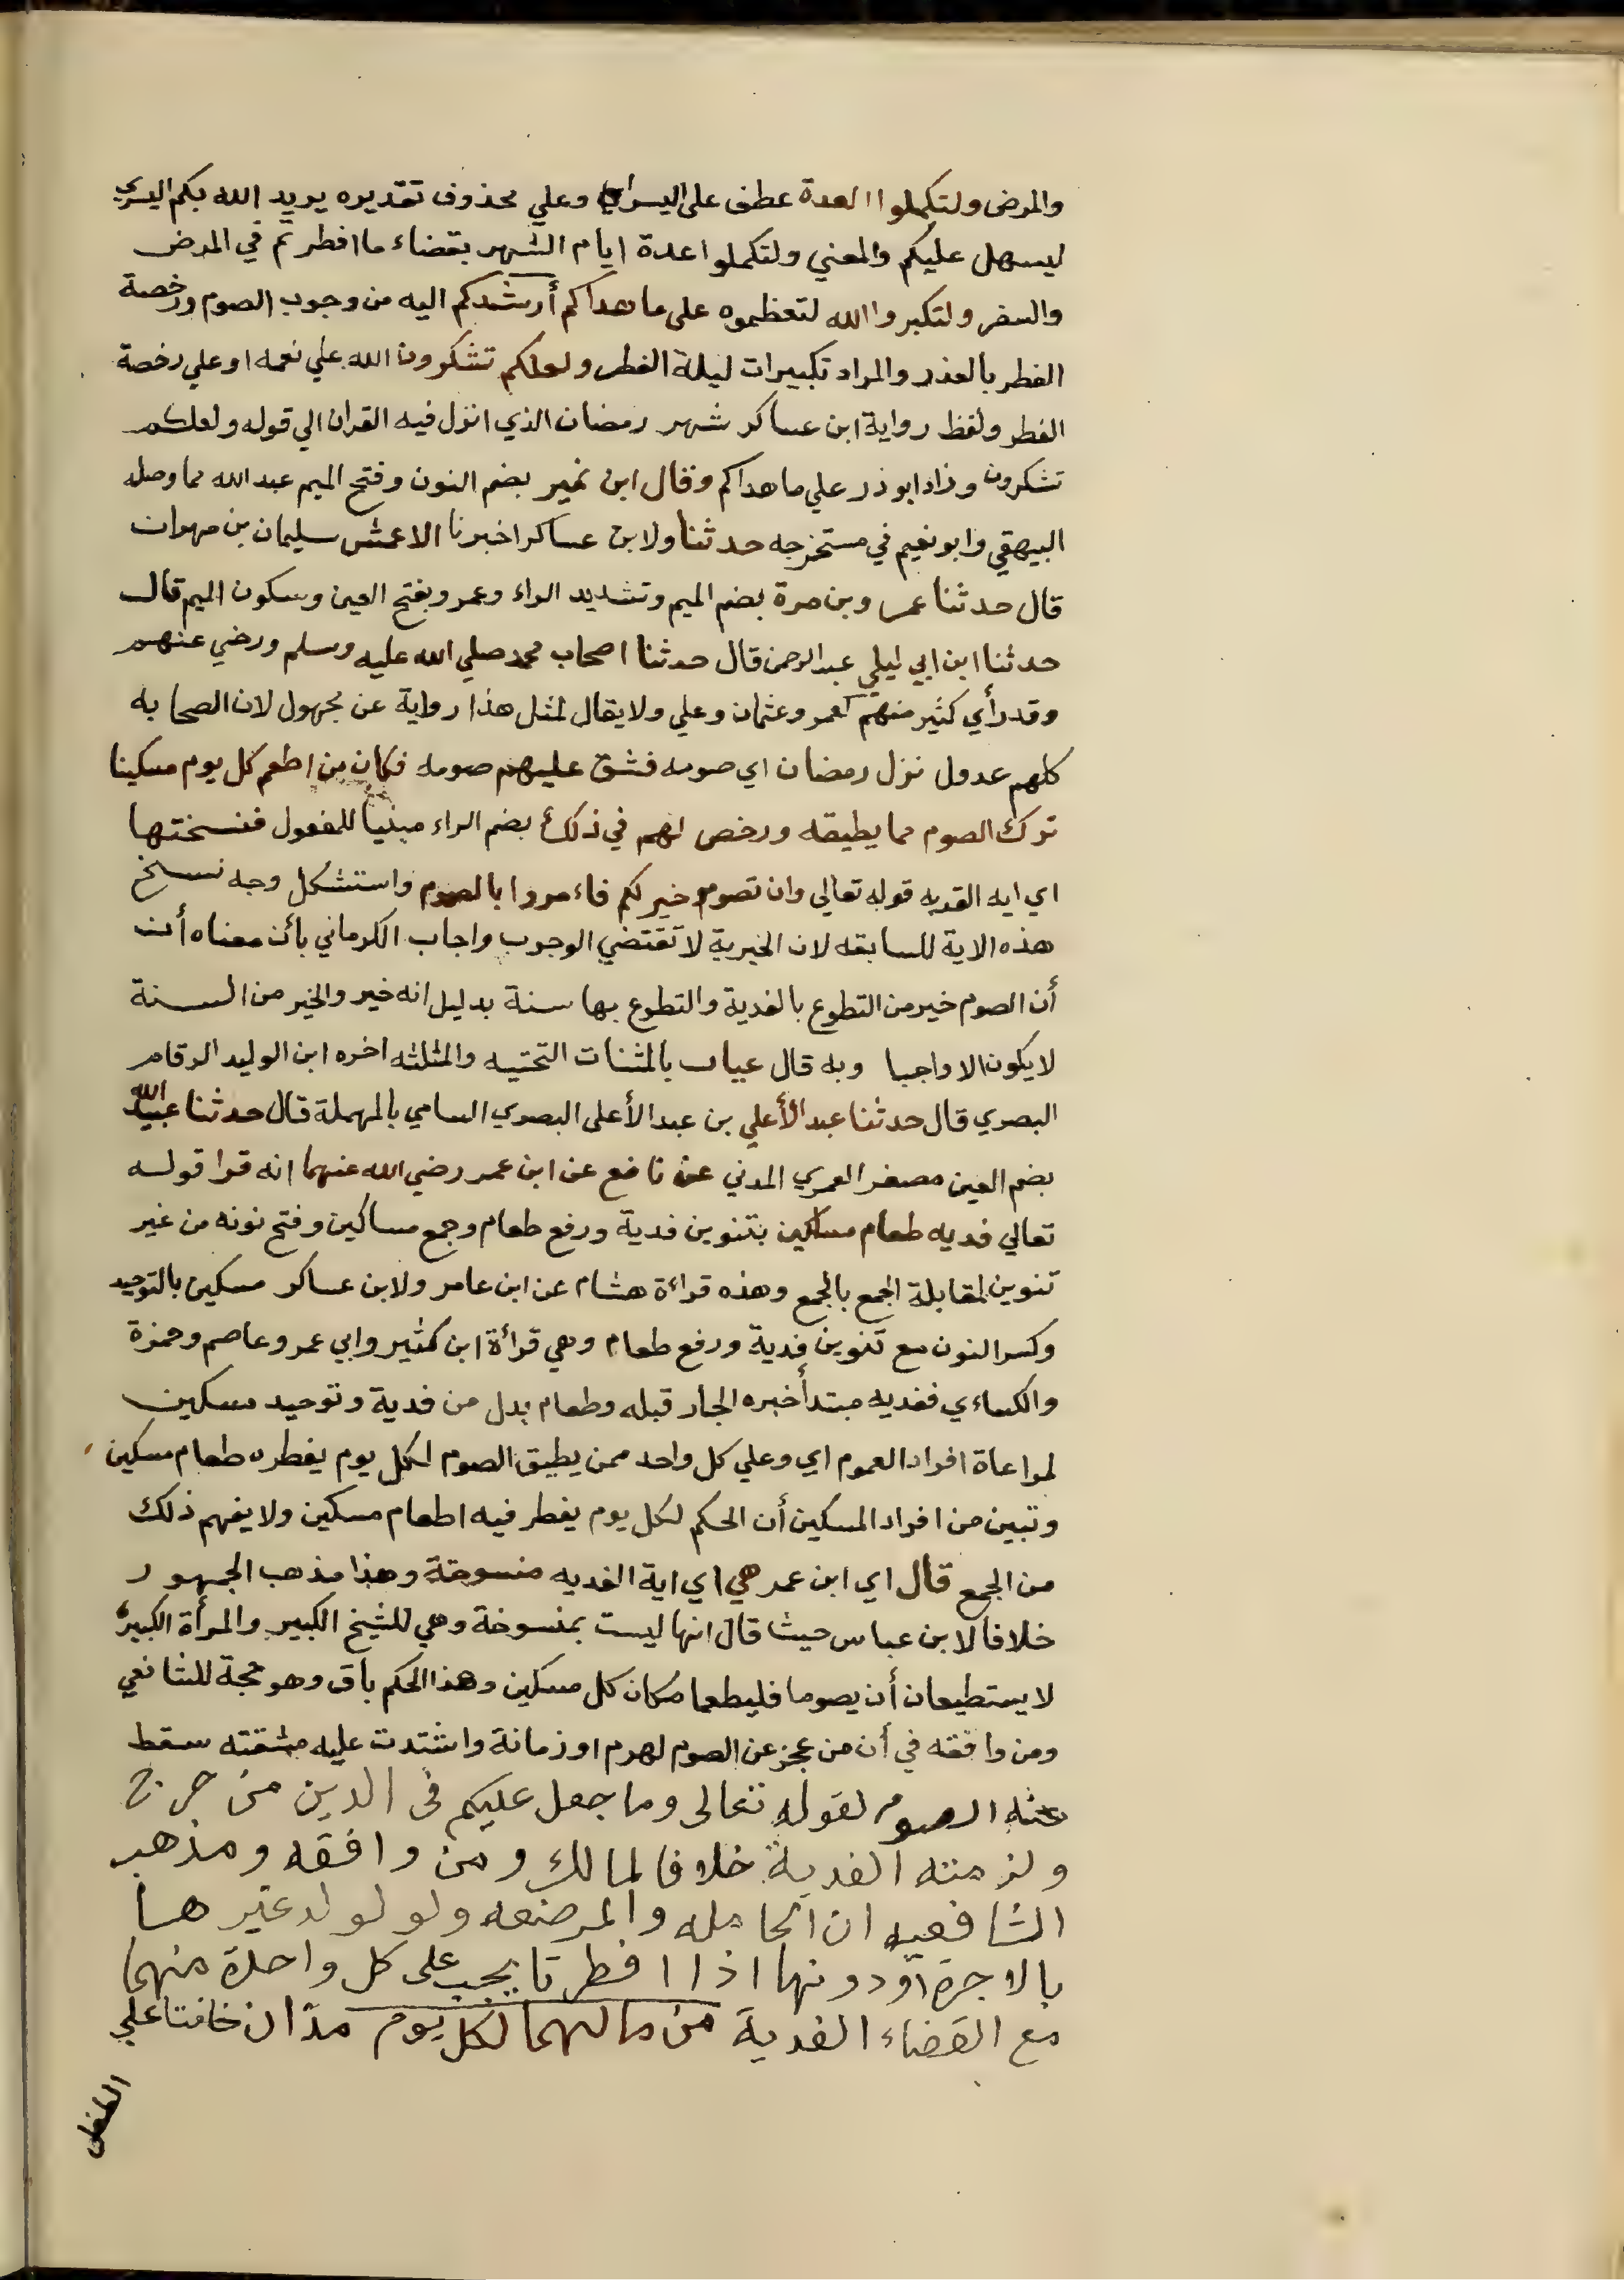 والمرض ولتكملوا العدة عطف على اليسر اي وعلي محذوف تقديره يريد الله بكم اليسر
ليسهل عليكم والمعني ولتكملوا عدة ايام الشهر بقضاء ما افطرتم في المرض
والسفر ولتكبروا الله لتعظموه على ما هداكم أرشدكم اليه من وجوب الصوم ورخصة
الفطر بالعذر والمراد تكبيرات ليلة الفطر ولعلكم تشكرون الله علي نعمه او علي رخصة
الفطر ولفظ رواية ابن عساكر شهر رمضان الذي انزل فيه القران الي قوله ولعلكم
تشكرون وزاد ابو ذر علي ما هداكم وقال ابن نمير بضم النون وفتح الميم عبد الله مما وصله
البيهقي وابو نعيم في مستخرجه حدثنا ولابن عساكر اخبرنا الاعمش سليمان بن مهران
قال حدثنا عمرو بن مرة بضم الميم وتشديد الراء وعمرو بفتح العين وسكون الميم قال
حدثنا ابن ابي ليلي عبد الرحمن قال حدثنا اصحاب محمد صلي الله عليه وسلم ورضي عنهم
وقد رأي كثير منهم كعمر وعثمان وعلي ولا يقال لمثل هذا رواية عن مجهول لان الصحابه
كلهم عدول نزل رمضان اي صومه فشق عليهم صومه فكان من اطعم كل يوم مسكينا
ترك الصوم مما يطيقه ورخص لهم في ذلك بضم الراء مبنيا للمفعول فنسختها
اي ايه الفديه قوله تعالي وان تصوموا خير لكم فاءمروا بالصوم واستشكل وجه نسخ
هذه الاية للسابقه لان الخيرية لا تقتضي الوجوب واجاب الكرماني بأن معناه أن
أن الصوم خير من التطوع بالفدية والتطوع بها سنة بدليل انه خير والخير من السنة
لا يكون الا واجبا وبه قال عياش بالمثنات التحتيه والمثلثه اخره ابن الوليد الرقام
البصري قال حدثنا عبد الأعلي بن عبد الأعلى البصري السامي بالمهملة قال حدثنا عبيد الله
بضم العين مصغر العمري المدني عن نافع عن ابن عمر رضي الله عنهما انه قرا قوله
تعالي فديه طعام مساكين بتنوين فدية ورفع طعام وجمع مساكين وفتح نونه من غير
تنوين لمقابلة الجمع بالجمع وهذه قراءة هشام عن ابن عامر ولابن عساكر مسكين بالتوحيد
وكسر النون مع تنوين فدية ورفع طعام وهي قرأة ابن كثير وابي عمر وعاصم وحمزة
والكساءي ففديه مبتدأ خبره الجار قبله وطعام بدل من فدية وتوحيد مسكين
لمراعاة افراد العموم اي وعلي كل واحد ممن يطيق الصوم لكل يوم يفطره طعام مسكين
وتبين من افراد المسكين أن الحكم لكل يوم يفطر فيه اطعام مسكين ولا يفهم ذلك
من الجمع قال اي ابن عمر هي اي اية الفديه منسوخة وهذا مذهب الجمهور
خلافا لابن عباس حيث قال انها ليست بمنسوخة وهي للشيخ الكبير والمرأة الكبيرة
لا يستطيعان أن يصوما فليطعما مكان كل مسكين وهذا الحكم باق وهو حجة للشافعي
ومن وافقه في أن من عجز عن الصوم لهرم او زمانة واشتدت عليه مشقته سقط
عنه الصوم لقوله تعالى وما جعل عليكم فى الدين من حرج
ولزمته الفدية خلافا لمالك ومن وافقه ومذهب
الشافعيه ان الحامله والمرضعه ولو لولد غيرها
بالاجرة او دونها اذا افطرتا يجب على كل واحدة منهما
مع القضاء الفدية من مالهما لكل يوم مدّ ان خافتا علي
الطفل